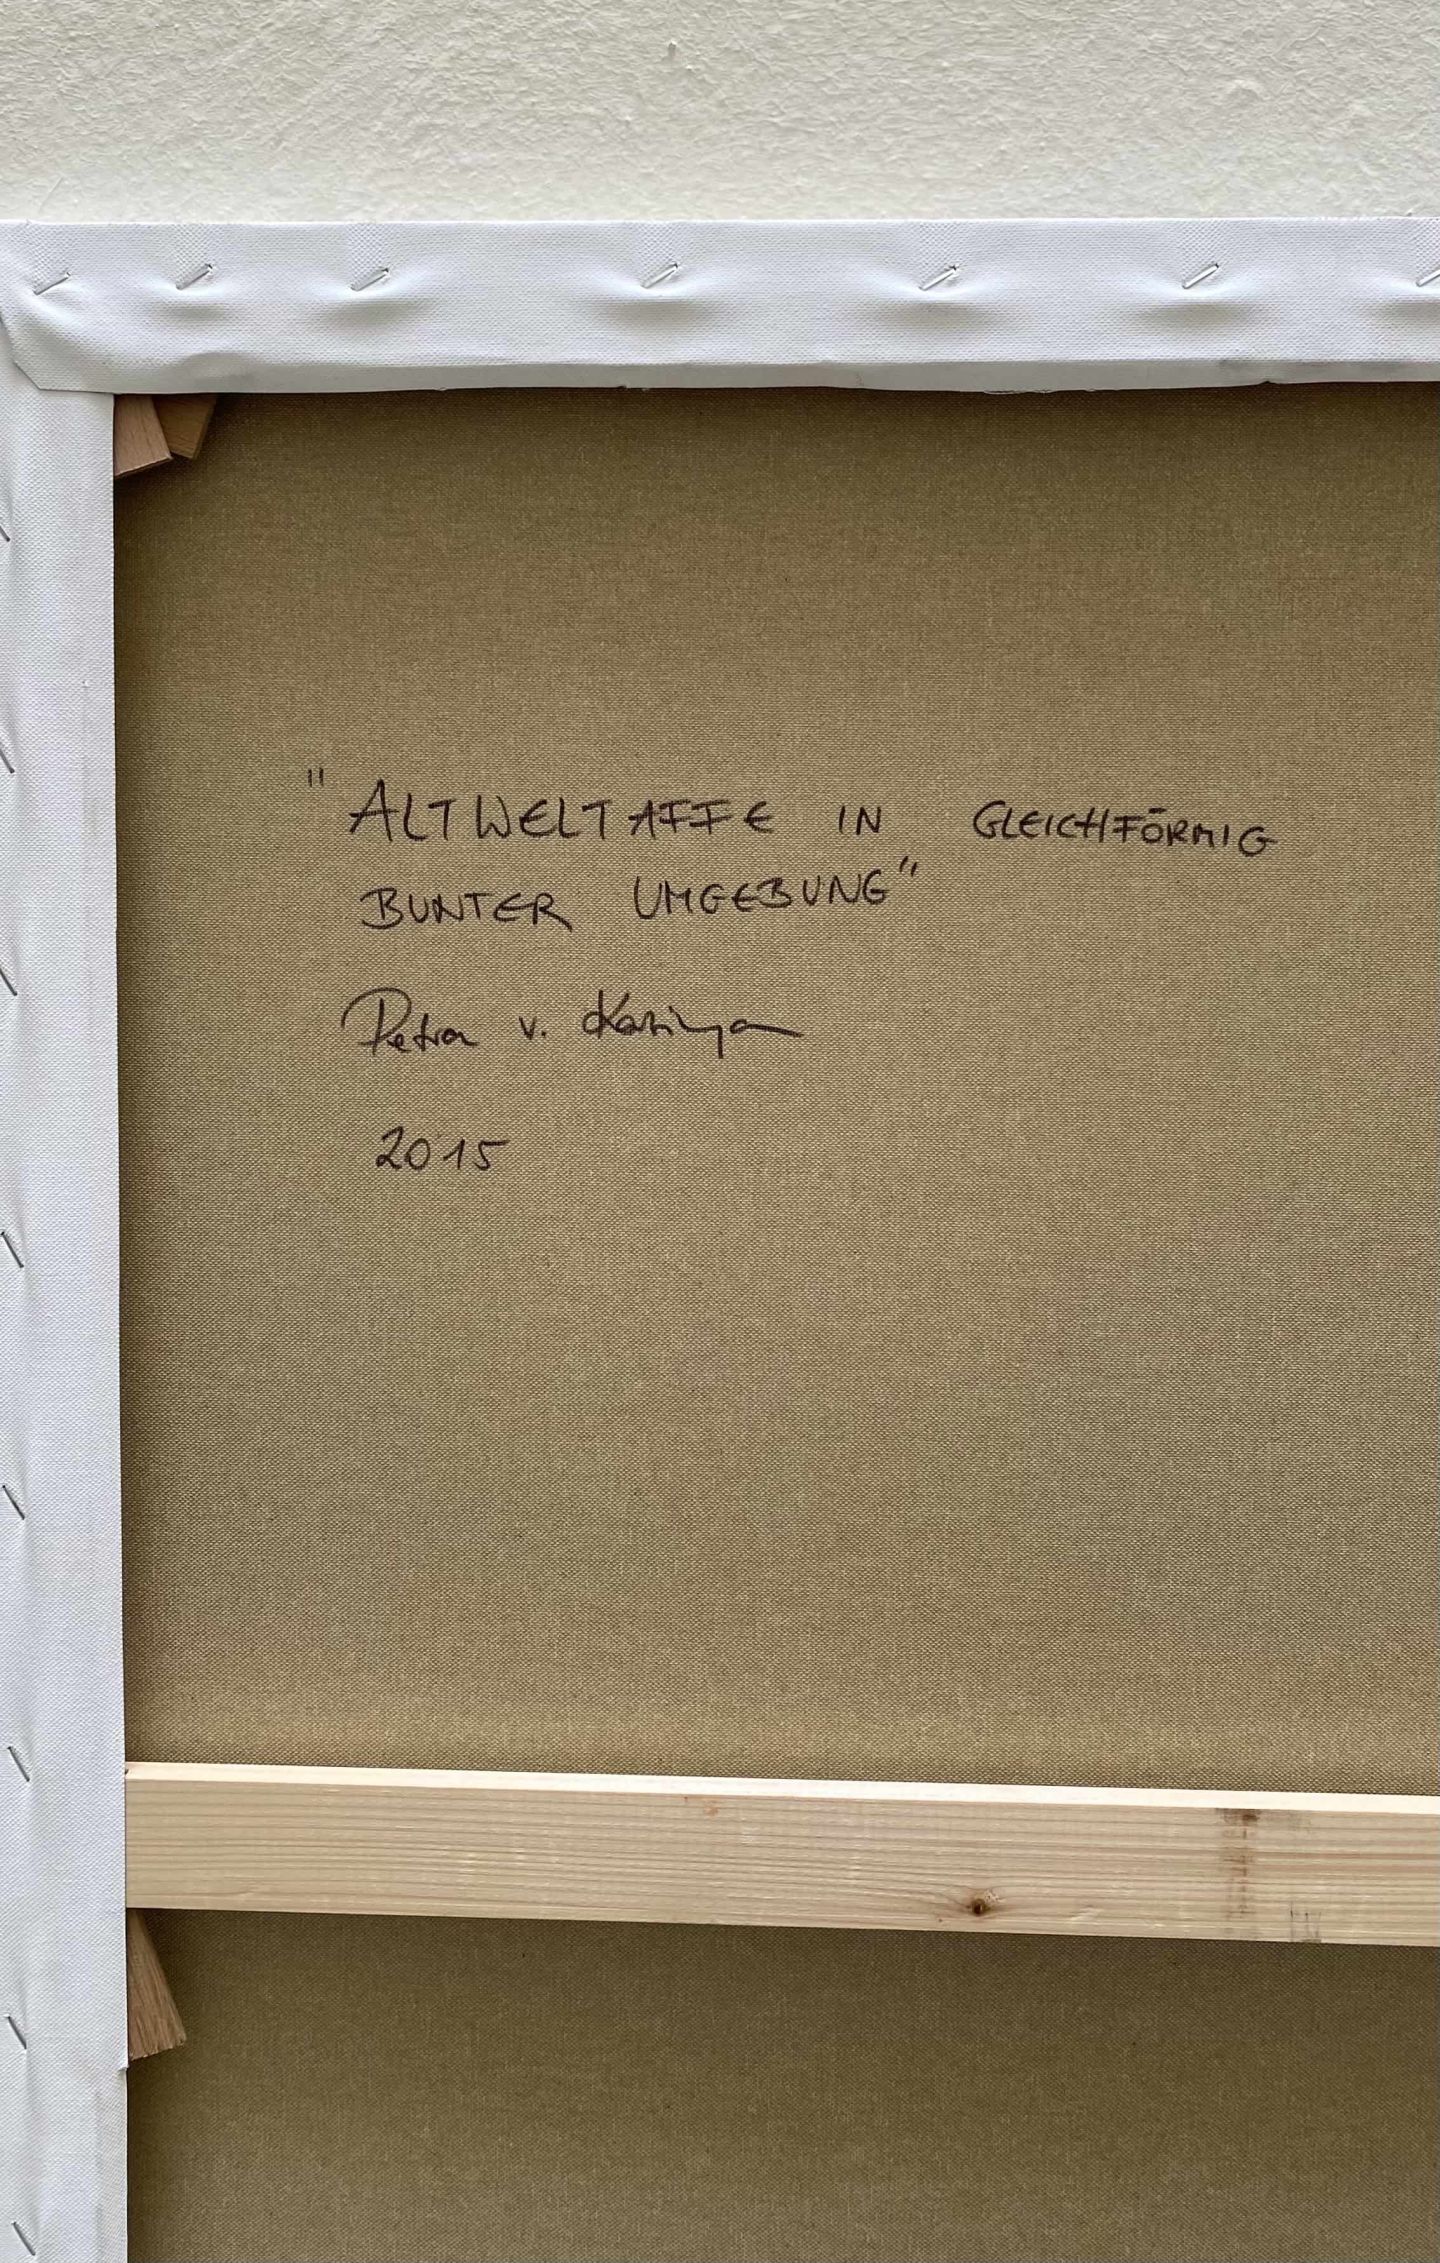 "ALTWELTAFFE IN GLEICHFÖRMIG
BUNTER UMGEBUNG"
Petra v. Kazinyan
2015